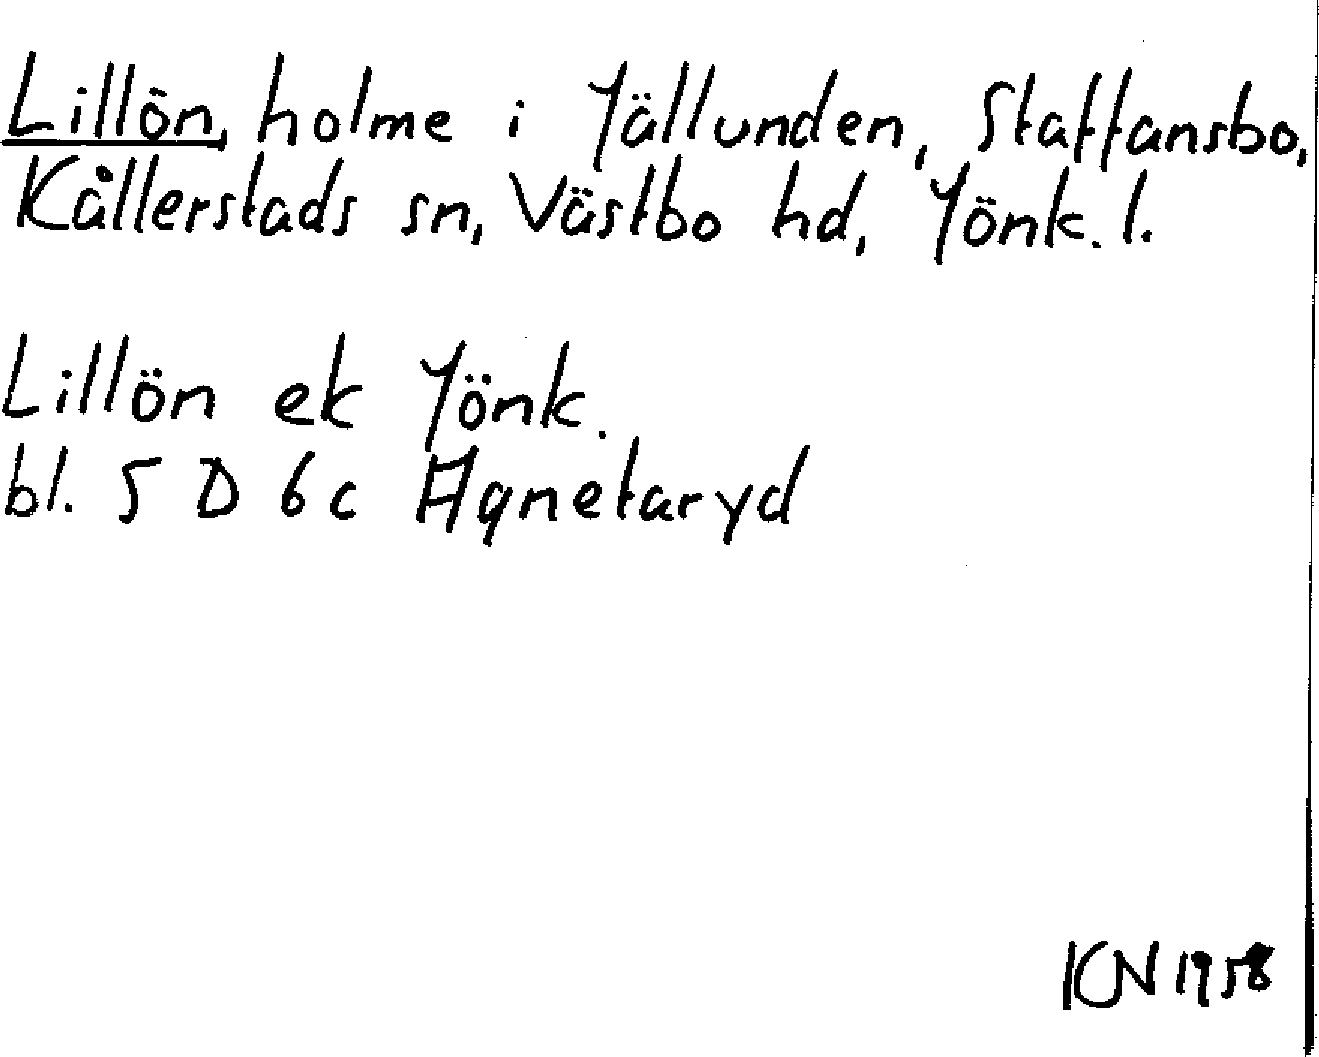 Lillön, holme i Jällunden, Staffansbo,
Kållerstads sn, Västbo hd, Jönk. l.
Lillön ek Jönk.
bl. 5 D 6c Agnetaryd
KN 1958